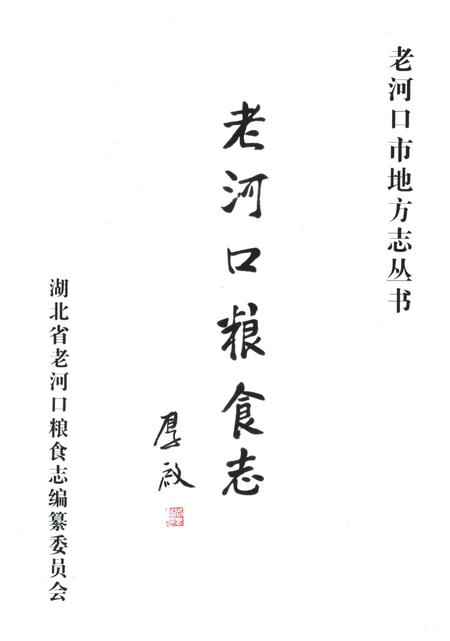 老河口市地方志丛书
老河口粮食志
厚啟
湖北省老河口粮食志编纂委员会